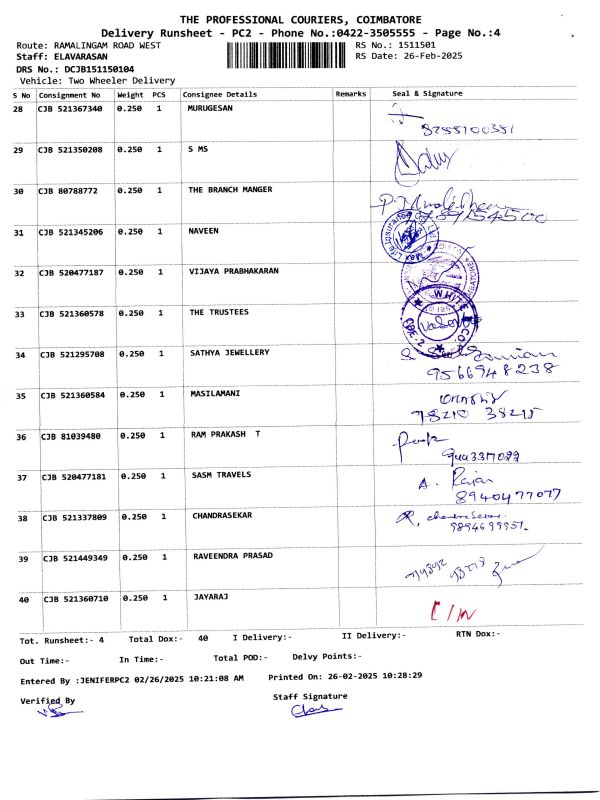 THE PROFESSIONAL COURIERS, COIMBATORE
Delivery Runsheet - PC2 - Phone No.:0422-3505555 - Page No.:4
Route: RAMALINGAM ROAD WEST RS No.: 1511501
Staff: ELAVARASAN RS Date: 26-Feb-2025
DRS No.: DCJB151150104
Vehicle: Two Wheeler Delivery
S No Consignment No Weight PCS Consignee Details Remarks Seal & Signature
28 CJB 521367340 0.250 1 MURUGESAN
29 CJB 521350208 0.250 1 S MS
30 CJB 80788772 0.250 1 THE BRANCH MANGER
31 CJB 521345206 0.250 1 NAVEEN
32 CJB 520477187 0.250 1 VIJAYA PRABHAKARAN
33 CJB 521360578 0.250 1 THE TRUSTEES
WHITE
34 CJB 521295708 0.250 1 SATHYA JEWELLERY
9566948238
35 CJB 521360584 0.250 1 MASILAMANI
78210 38215
36 CJB 81039480 0.250 1 RAM PRAKASH T
37 CJB 520477181 0.250 1 SASM TRAVELS A. Rajan
8940477077
38 CJB 521337809 0.250 1 CHANDRASEKAR R. chandrasekar
9894699951
39 CJB 521449349 0.250 1 RAVEENDRA PRASAD
40 CJB 521360710 0.250 1 JAYARAJ
Tot. Runsheet:- 4 Total Dox:- 40 I Delivery:- II Delivery:- RTN Dox:-
Out Time:- In Time:- Total POD:- Delvy Points:-
Entered By :JENIFERPC2 02/26/2025 10:21:08 AM Printed On: 26-02-2025 10:28:29
Verified By Staff Signature